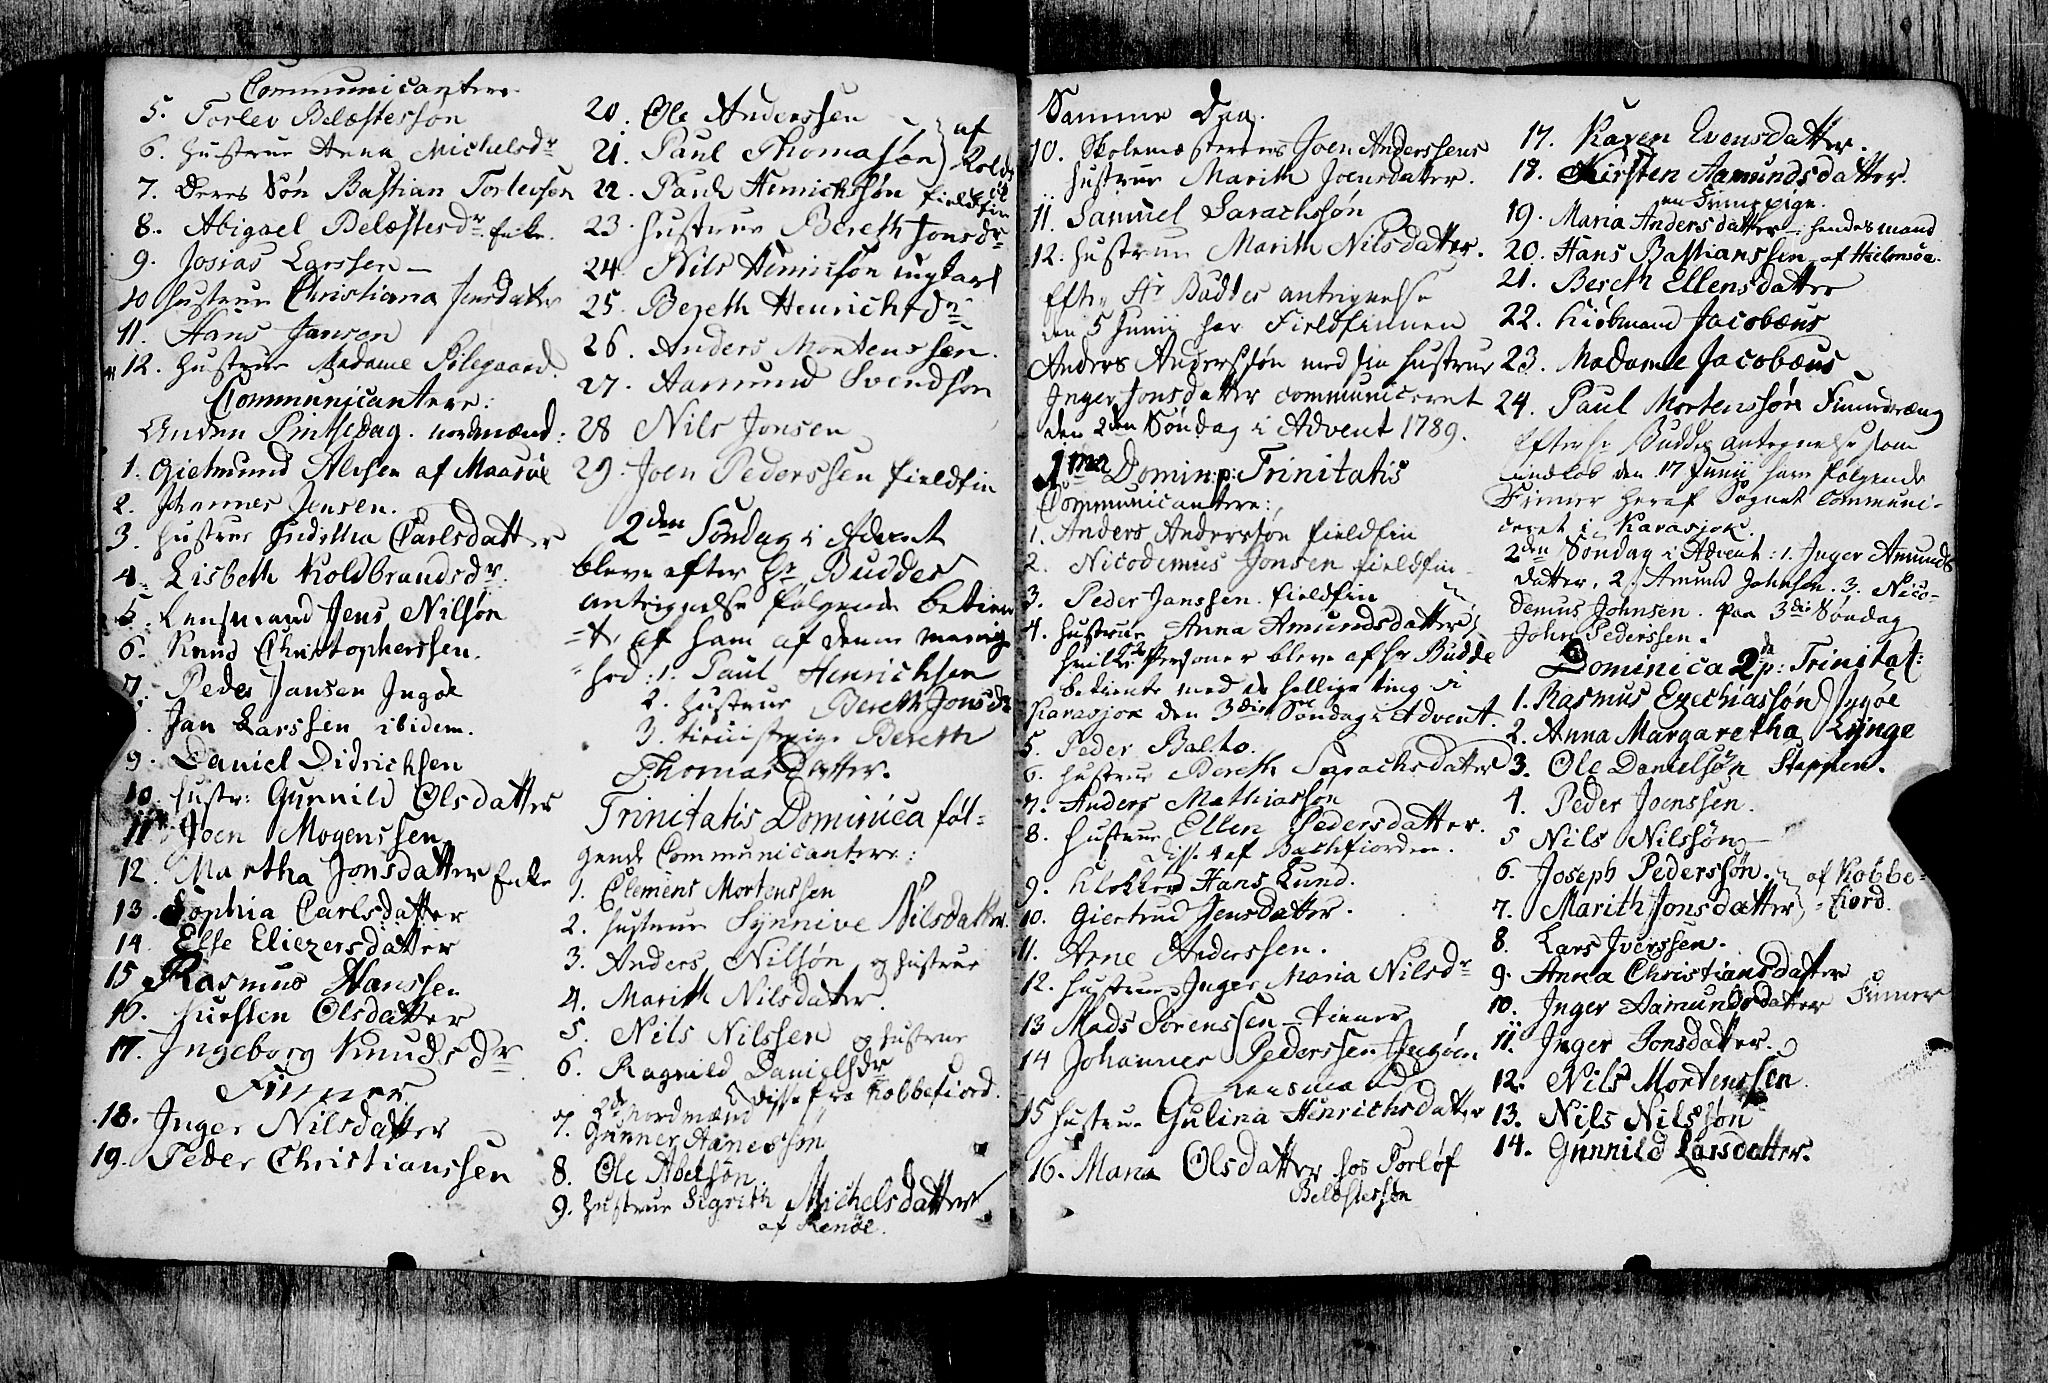 Communicantere
5. Torlev Belæstessøn
6. Hustrue Anna Michelsdr
7. Deres Søn Bastian Torlevsen
8. Abigael Belæstersdr Enke.
9. Josias Larssen
10 Hustrue Christiana Jensdatter
11. Hans Jansen
12. Hustrue Madame Pilegaard.
Communicantere:
Anden Pintsedag. nordmænd:
1. Gietmund Alvsen af Maasøe
2. Johannes Jensen.
3. Hustrue Inditha Carlsdatter
4. Lisbeth Koldbrandsdr.
5. Lensmand Jens Nilsøn
6. Knud Christophersen.
7. Peder Jansen Ingøe
Jan Larssen ibidem.
9. Daniel Didrichsen
10. Hustr: Gunnild Olsdatter
11 Joen Mogenssen
12. Martha Jonsdatter Enke
13. Sophia Carlsdatter
14. Else Eliezersdatter
15 Rasmus Hanssen
16. Kirsten Olsdatter
17. Ingeborg Knudsdr
Finner
18. Inger Nilsdatter
19. Peder Christianssen
20. Ole Anderssen
21. Paul Thomasøn } af Kolde
22. Paul Henrichsøn fieldfin
23. Hustrue Bereth Jonsdr
24. Nils Henricsøn ungkarl
25. Bereth Henrichsdr
26. Anders Mortenssen.
27. Aamund Svendsøn
28 Nils Jonsen
29. Joen Pederssen fieldfin
2den Søndag i Advent
bleve efter Hr Buddes
antegnelse følgende betien
-t, af ham af denne menig
-hed: 1. Paul Henrichsen
2. Hustrue Bereth Jonsdr
3. Bereth
Thomasdatter.
Trinitatis Dominica føl-
gende Communicantere:
1. Clemens Mortenssen
2. Hustrue Synnive Nilsdatter.
3. Anders Nilsøn og Hustrue
4. Marith Nilsdatter.
5. Nils Nilssen og Hustrue
6. Ragnild Danielsdr
disse fra Kobbefiord.
Nordmænd
7. Gunner Hanessøn
8. Ole Abelsøn.
9. Hustrue Sigrith Michelsdatter
af Renøe.
Samme Dag.
10. Skolemesterens Joen Anderssens
Hustrue Marith Joensdatter.
11. Samuel Sarachsøn
12. Hustrue Marith Nilsdatter.
Efter Hr Buddes antegnelse
den 5 Junii har Fieldfinnen
Anders Anderssøn med sin Hustrue
Inger Jonsdatter communiceret
den 2den Søndag i Advent 1789.
1ma Domin: p: Trinitatis
Communicantere:
1. Anders Andersøn fieldfin
2. Nicodemus Jonsen fieldfin
3. Peder Janssen. fieldfin
4. Hustrue Anna Amundsdatter,
hvilke Personer bleve af Hr Budde
betiente med de hellige ting i
Karasjok den 3die Søndag i Advent.
5. Peder Balto.
6. Hustrue Bereth Sarachsdatter
7. Anders Mathiassøn
8. Hustrue Ellen Pedersdatter.
Disse 4 af Bachfiorden.
9. Klokker Hans Lund.
10. Giertrud Jensdatter.
11. Arne Anderssen.
12. Hustrue Inger Maria Nilsdr
13 Mads Sørenssen tiener
14 Johannes Pederssen Ingøen
Lensmand
15 Hustrue Gulina Henrichsdatter
16. Maria Olsdatter hos Torløf
Belæstessøn
17. Karen Evensdatter.
18. Kirsten Aamundsdatter.
en Finnepige.
19. Maria Andersdatter – hendes mand
20. Hans Bastianssen af Hielmsøe.
21. Bereth Ellensdatter
22. Kiøbmand Jacobæus
23. Madame Jacobæus
24. Paul Mortenssøn Finnedræng
Efter Hr Buddes antegnelse som
den 17 Junii have følgende
Finner heraf Sognet communi-
ceret i Karasjok.
2den Søndag i Advent: 1. Inger Amunds
datter, 2. Amund Johnsøn. 3. Nico-
demus Johnsen. paa 3die Søndag
John Pederssen.
Dominica 2da p: Trinitat:
1. Rasmus Ezechiassøn Ingøe
2. Anna Margaretha Kynge
3. Ole Danielsøn Stappen.
4. Peder Joenssen.
5 Nils Nilssøn
6. Joseph Pederssøn. } af Kobbe-
7. Marith Jonsdatter } fiord.
8. Lars Iverssen.
9. Anna Christiansdatter
10. Inger Aamundsdatter Finner
11. Inger Jonsdatter.
12. Nils Mortenssen
13. Nils Nilssøn
14. Gunnild Larsdatter.